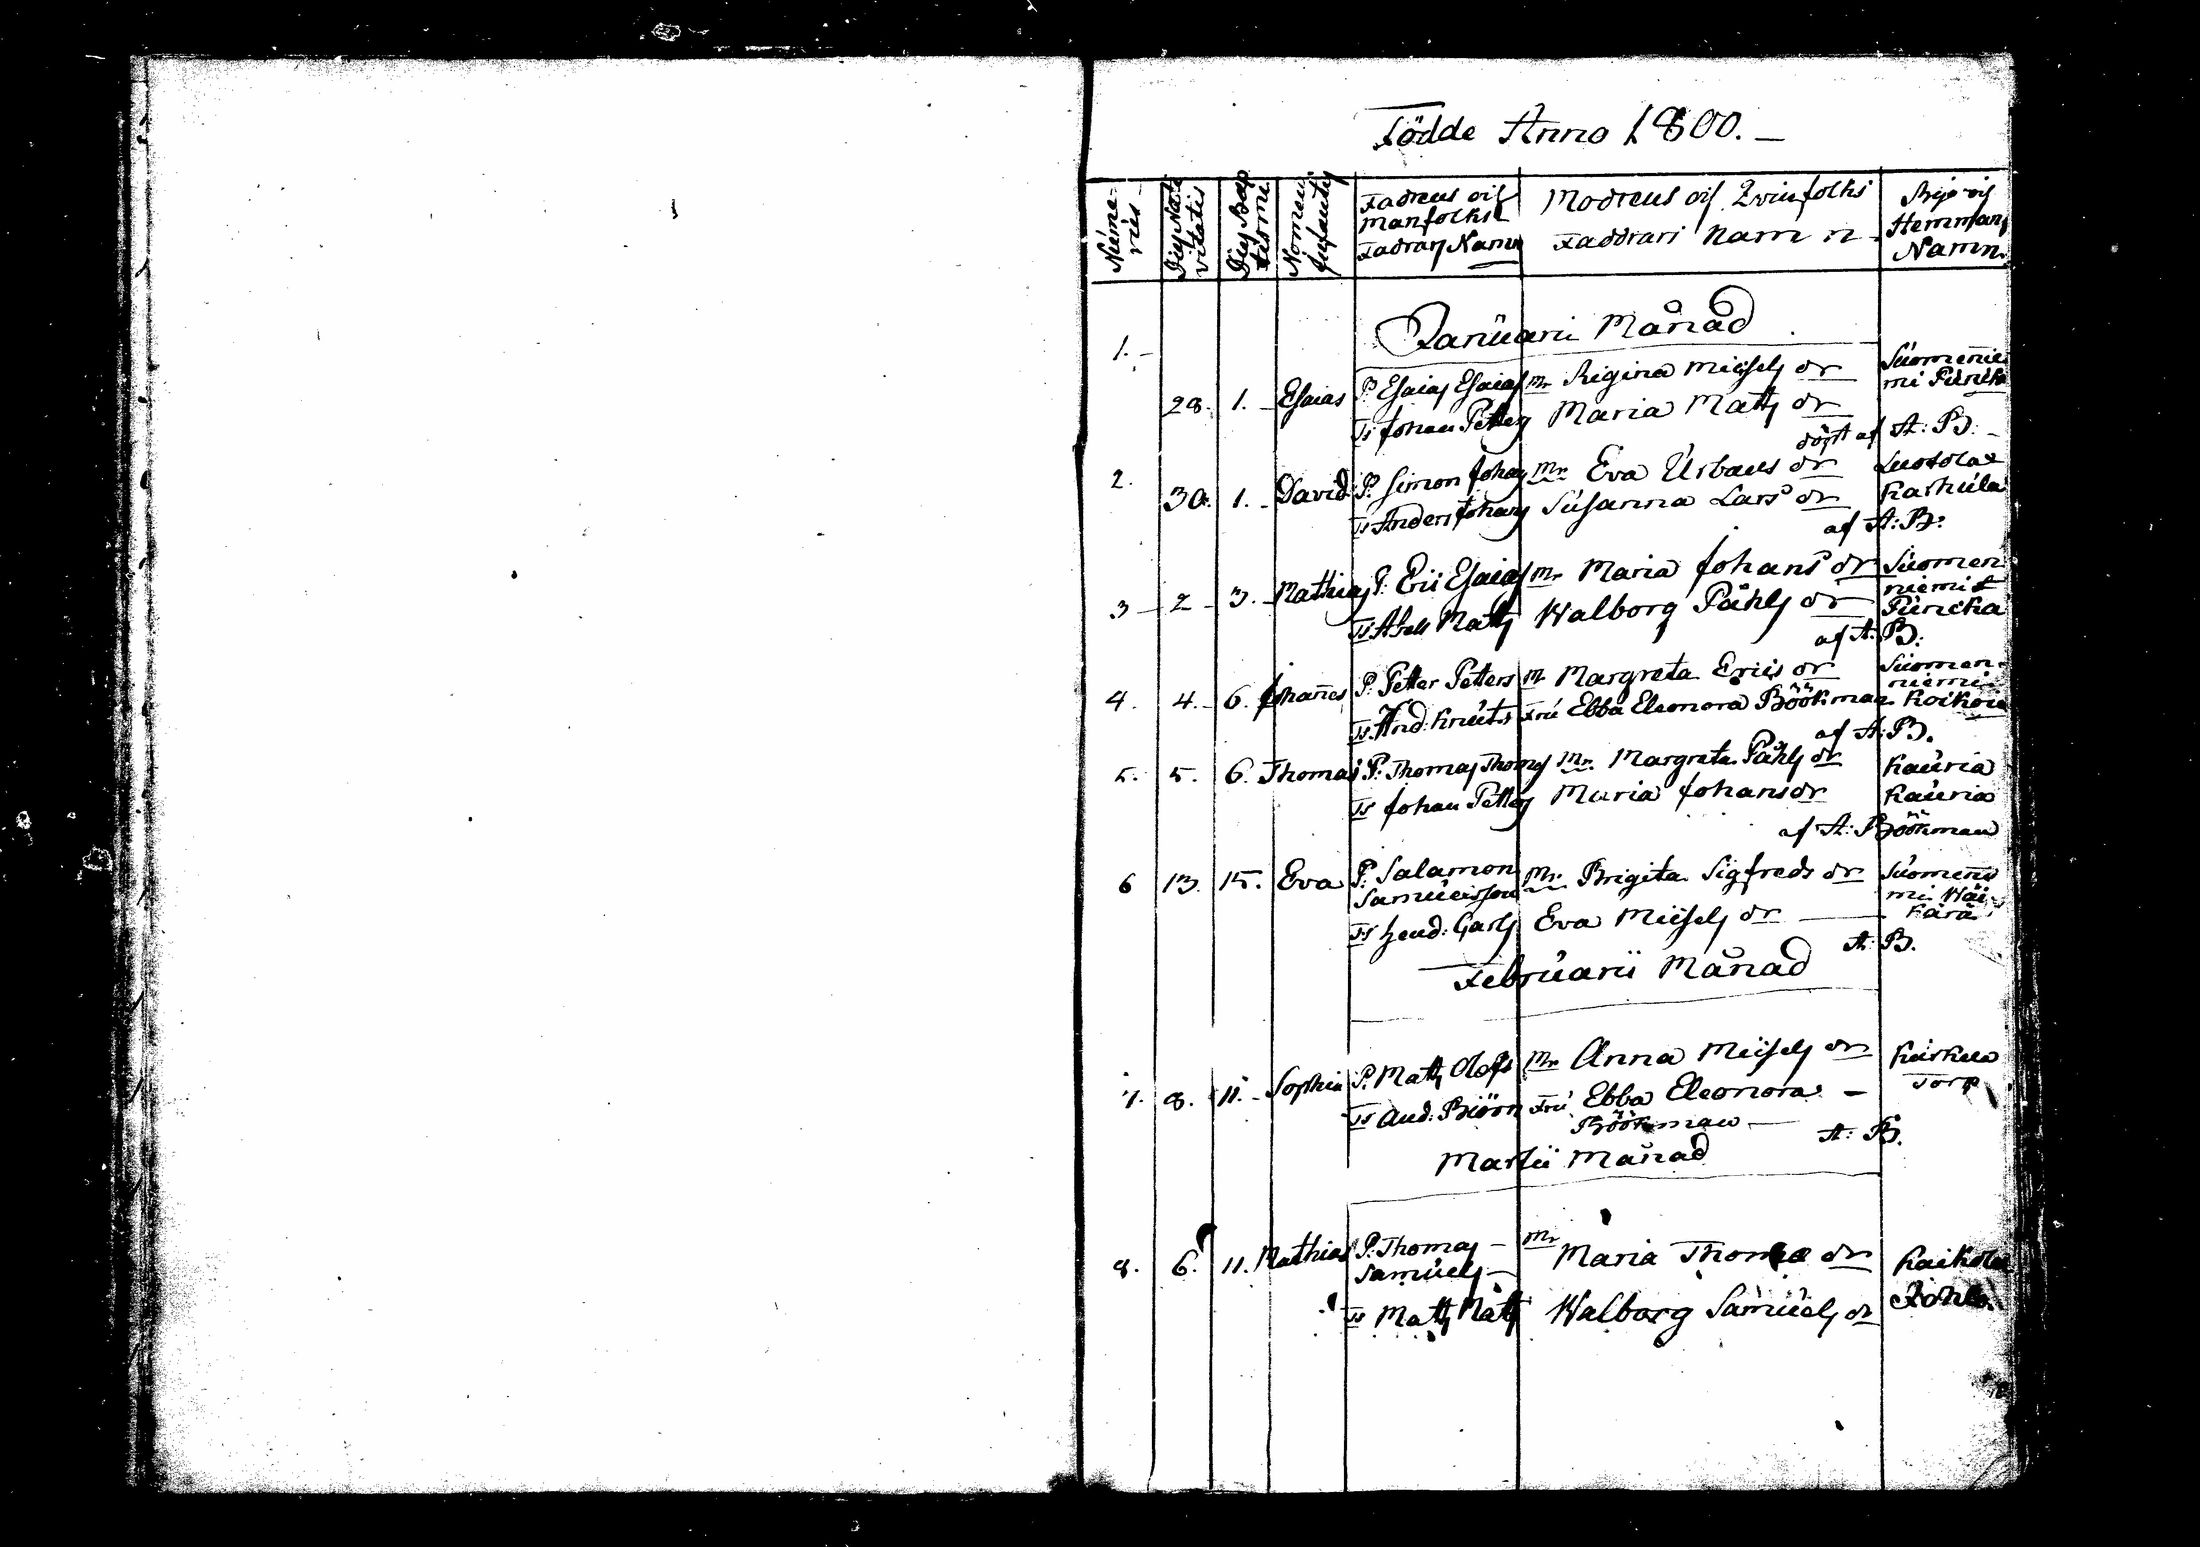 Födde Anno 1800.
Nume-
rus
Dies Nati-
vitatis
Dies Bap-
tismi
Nomen
Infantis
Fadrens och
manfolks
Fadrars Namn
Modrens och Qvinfolks
Faddrars Namn
Bys och
Hemmans
Namn.
Januarii Månad
1. 28. 1. Esaias P. Esaias Esaias Mr Regina Michels dr Suomenie
mi Puncka
Ts Johan Petters Maria Matts dr
döpt af A: B:
2. 30. 1. David P. Simon Johans Mr Eva Urbans dr
Karhula
Ts Anders Johans Susanna Lars dr
af A: B:
3 2 3. Mathias P. Eric Esaias Mr Maria Johans dr Suomen
niemi
Puncka
Ts Matts Walborg Påhls dr
af A: B:
4. 4. 6. Johanes P. Petter Petters M Margreta Erics dr Suomen-
niemi
Koikoia
Ts And: Knuts Fru Ebba Eleonora Böökman
af A: B.
5. 5. 6. Thomas P: Thomas Thomas Mr. Margreta Påhls dr Kauria
Ts Johan Petters Maria Johans dr Kauria
af A: Böökman
6 13. 15. Eva P: Salamon
Samuelsson Mr. Brigita Sigfreds dr Suomenie
mi
Ts Hend: Carls Eva Michels dr
A: B.
Februarii Månad
7. 8. 11. Sophia P. Matts Olofs Mr Anna Michels dr
Torp
Ts And: Biörn Fru Ebba Eleonora
Böökman
A: B.
Martii Månad
8. 6. 11. Mathias P. Thomas
Samuels Mr Maria Thomas dr Kaikola
Ts Matts Matts Walborg Samuels dr